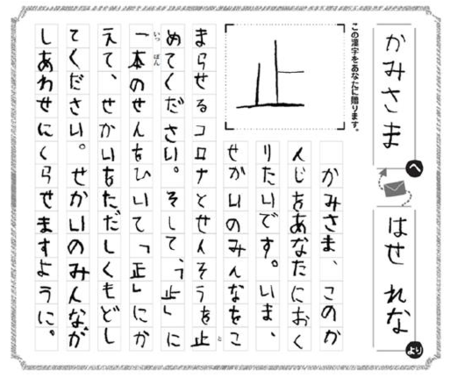 かみさま へ
はせ れな より
この漢字をあなたに贈ります。
止
かみさま、このか
んじをあなたにおく
りたいです。いま、
せかいのみんなをこ
まらせるコロナとせんそうを止
と
めてください。そして、「止」に
一本のせんをひいて「正」にか
いっ ぽん
えて、せかいをただしくもどし
てください。せかいのみんなが
しあわせにくらせますように。